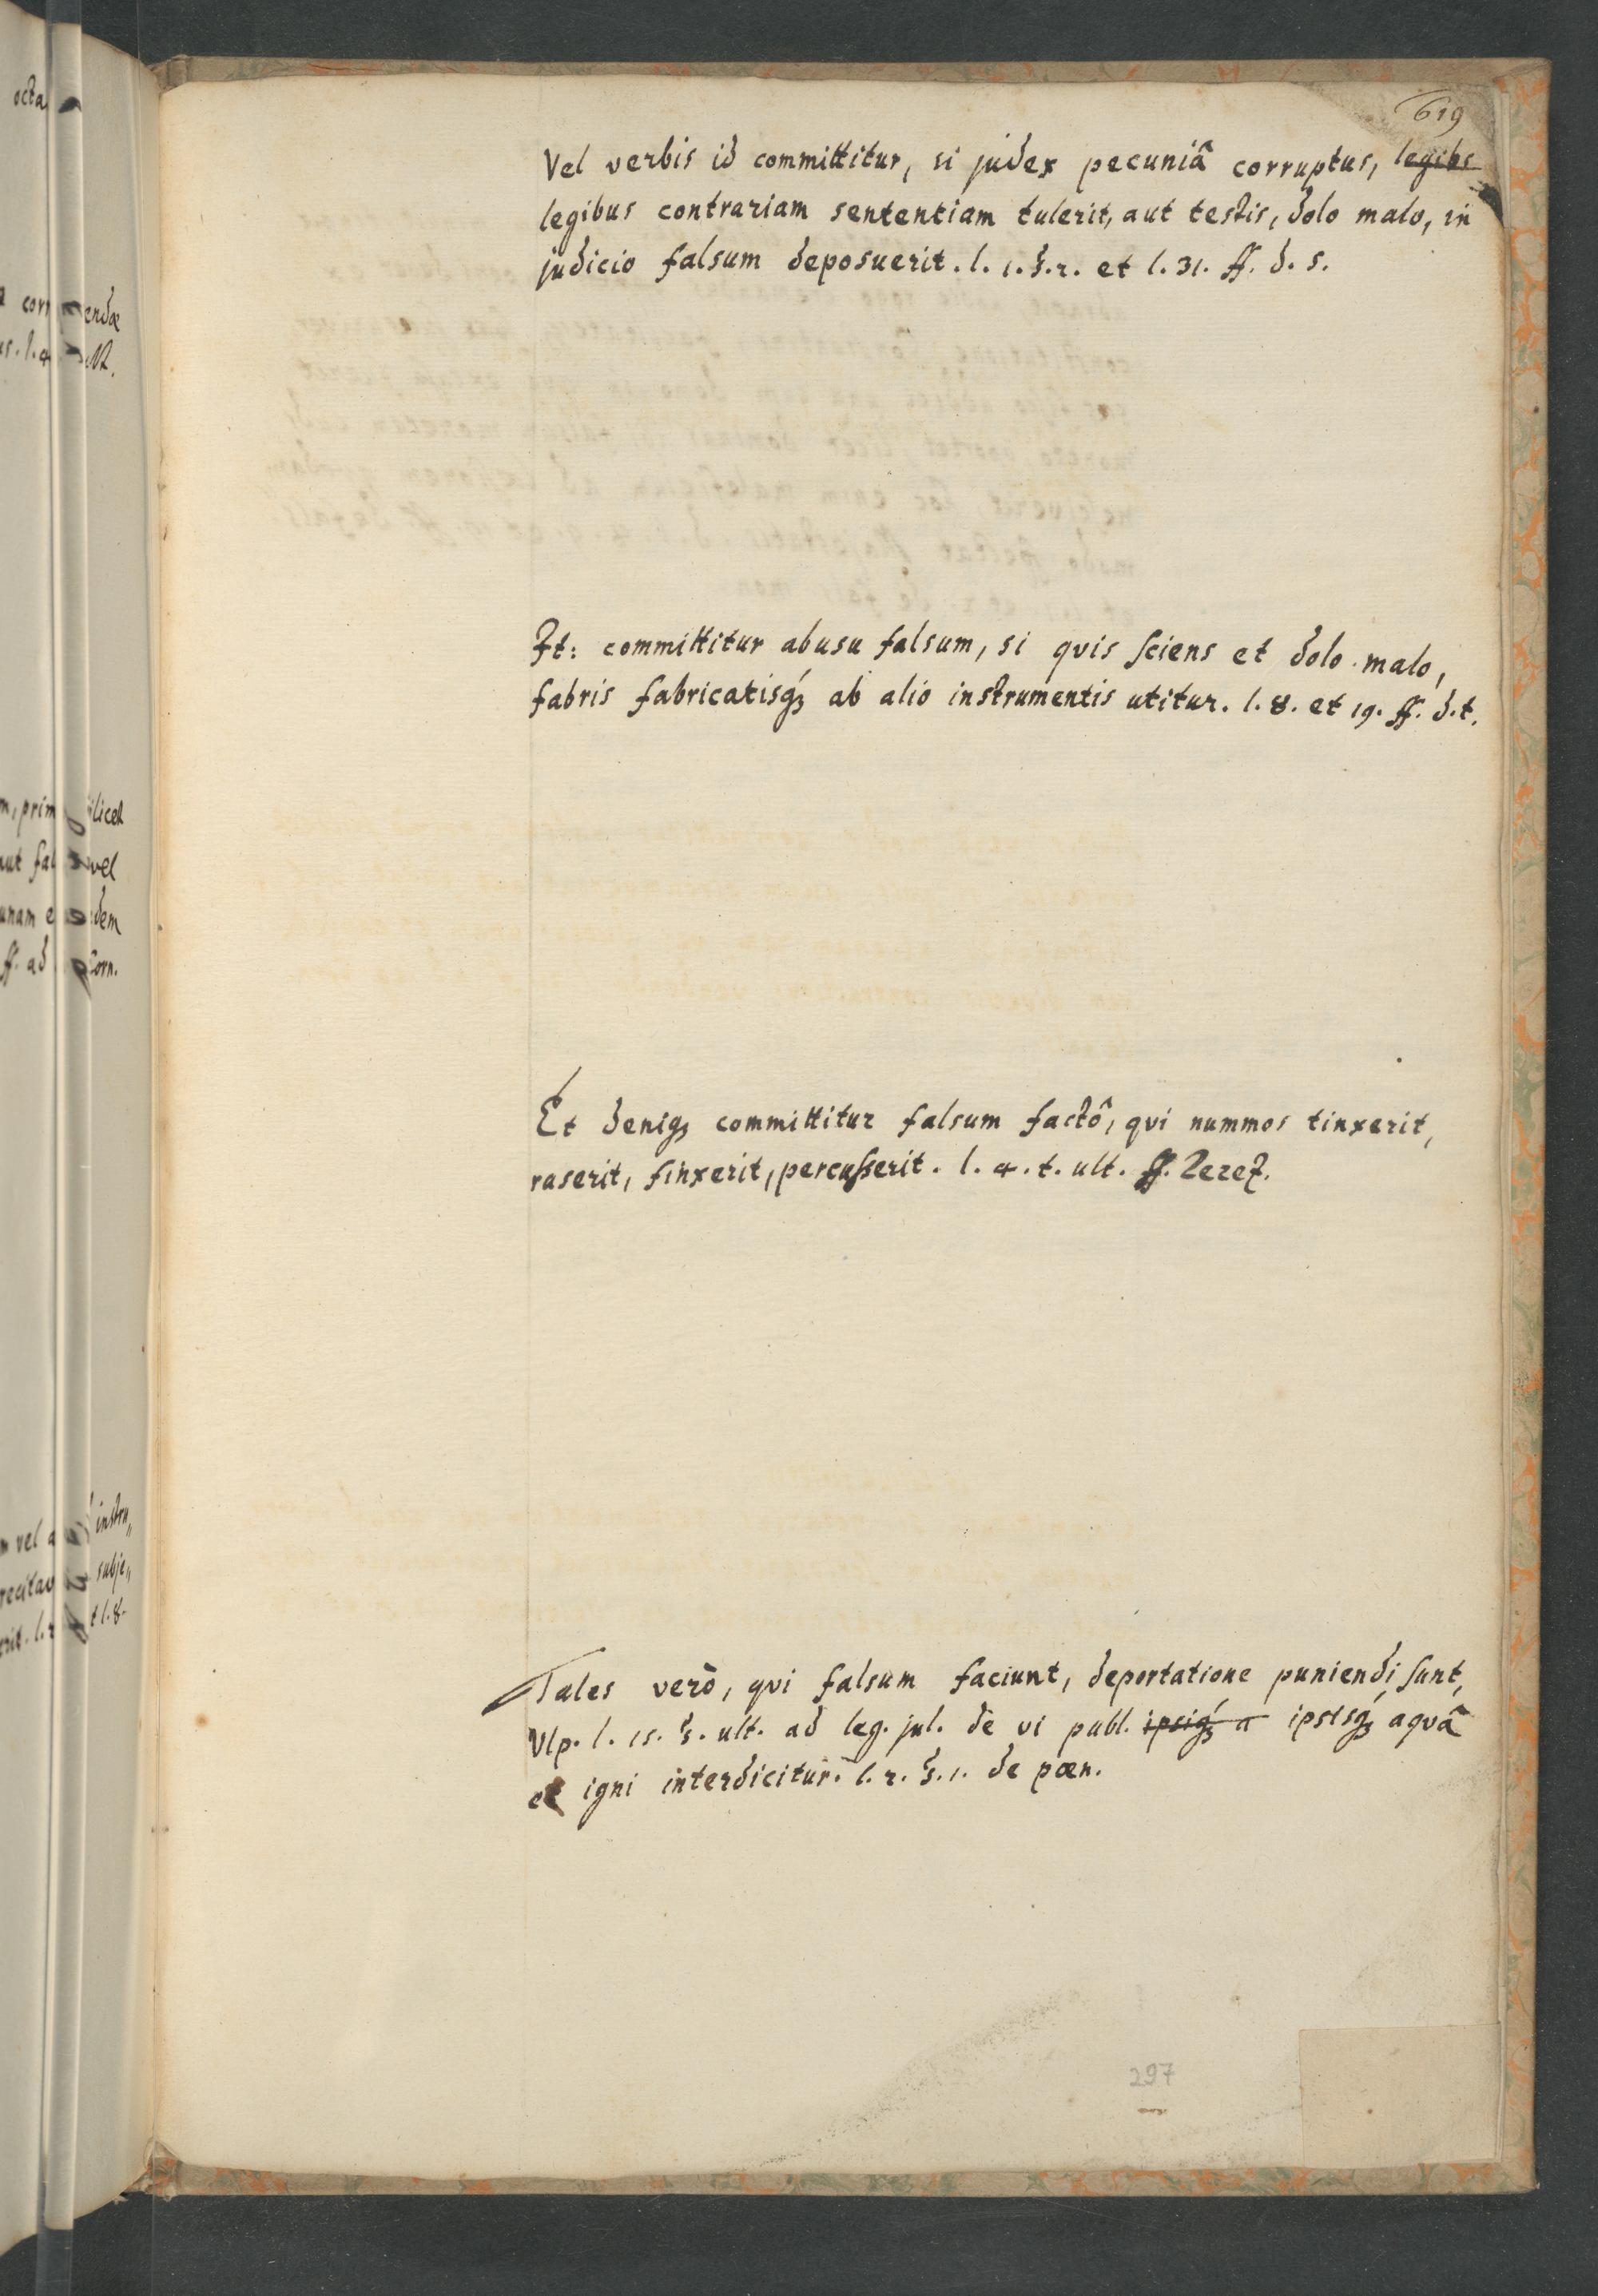 619
Vel verbis id committitur, si judex pecuniâ corruptus, legibs
legibus contrariam sententiam tulerit, aut testis, dolo malo, in
judicio falsum deposuerit. l. 1. §. 2. et l. 31. ff. d. s.
It: committitur abusu falsum, si quis sciens et dolo malo,
fabris fabricatisq́ꝫ ab alio instrumentis utitur. l. 8. et 19. ff. d. t.
Et deniqꝫ committitur falsum factô, qui nummos tinxerit,
raserit, finxerit, percusserit. l. 4. t. ult. ff.
Tales verò, qui falsum faciunt, deportatione puniendi sunt,
Ulp. l. 15. §. ult. ad leg. jul. de vi publ. ipsiq́ꝫ a ipsisq́ꝫ aquâ
et igni interdicitur. l. 2. §. 1. de pœn.
297